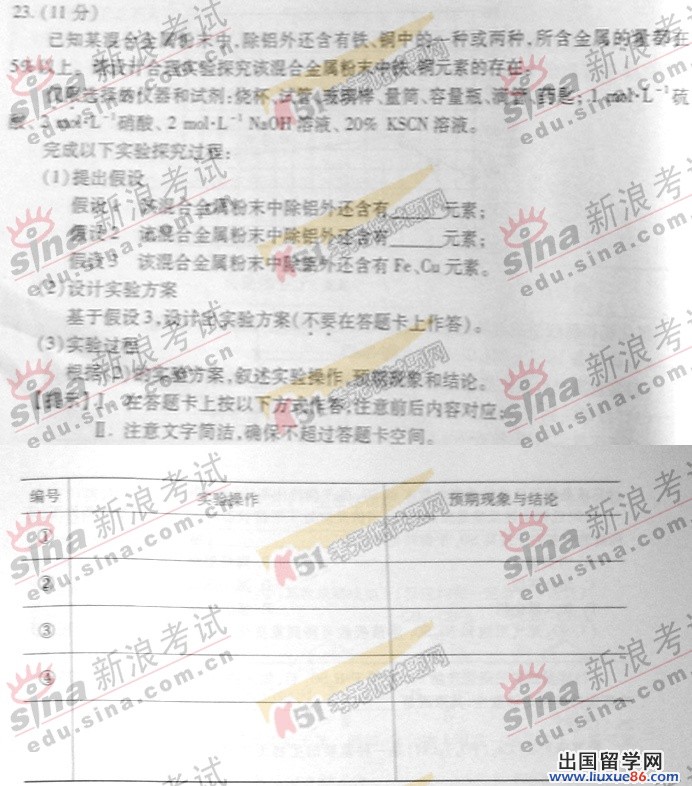 23.(11分)
已知某混合金属粉末中,除铝外还含有铁、铜中的一种或两种,所含金属的量都在
5%以上。请设计合理实验探究该混合金属粉末中铁、铜元素的存在。
仅限选择的仪器和试剂:烧杯、试管、玻璃棒、量筒、容量瓶、滴管、药匙;1 mol·L⁻¹硫
酸、2 mol·L⁻¹硝酸、2 mol·L⁻¹ NaOH溶液、20% KSCN溶液。
完成以下实验探究过程:
(1)提出假设
假设1 该混合金属粉末中除铝外还含有______元素;
假设2 该混合金属粉末中除铝外还含有______元素;
假设3 该混合金属粉末中除铝外还含有Fe、Cu元素。
(2)设计实验方案
基于假设3,设计出实验方案(不要在答题卡上作答)。
(3)实验过程
根据(2)的实验方案,叙述实验操作、预期现象和结论。
【提示】Ⅰ. 在答题卡上按以下方式作答,注意前后内容对应;
Ⅱ. 注意文字简洁,确保不超过答题卡空间。
编号 实验操作 预期现象与结论
①
②
③
④
sina新浪考试
edu.sina.com.cn
出国留学网
www.liuxue86.com